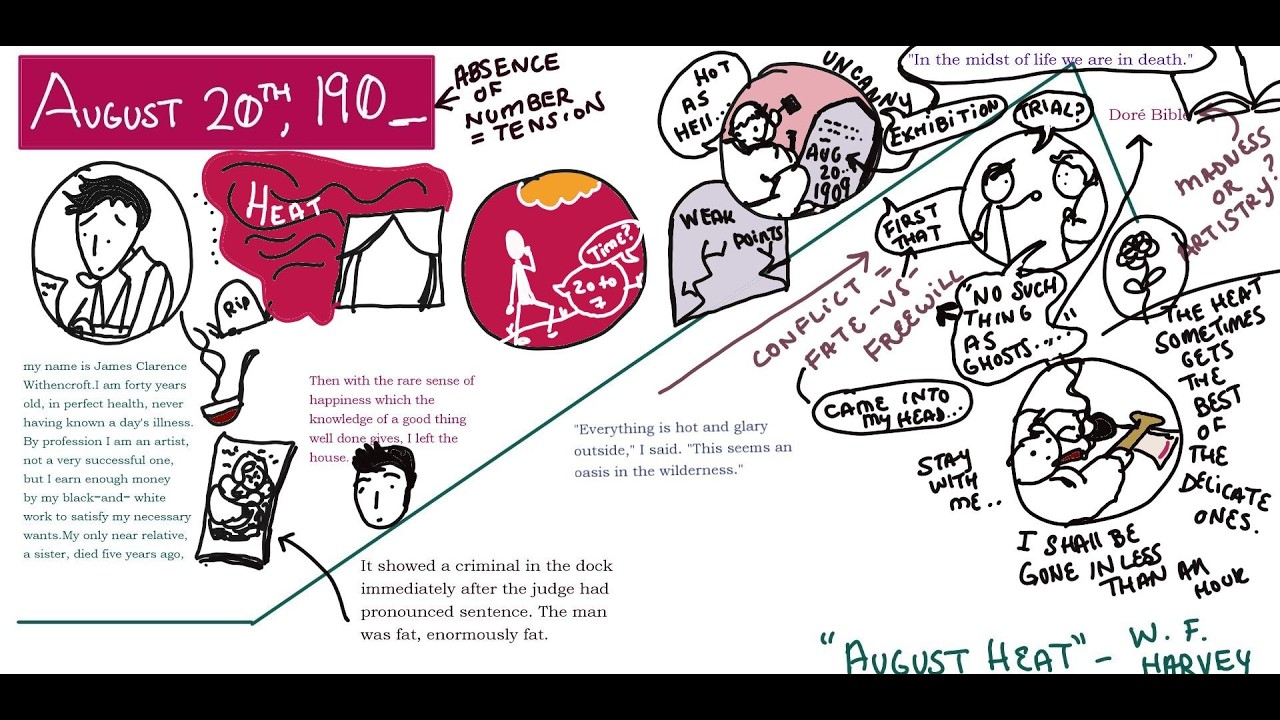 AUGUST 20TH, 190_
ABSENCE
OF
NUMBER
= TENSION
HEAT
RIP
TIME?
20 TO
7
my name is James Clarence
Withencroft.I am forty years
old, in perfect health, never
having known a day's illness.
By profession I am an artist,
not a very successful one,
but I earn enough money
by my black-and- white
work to satisfy my necessary
wants.My only near relative,
a sister, died five years ago,
Then with the rare sense of
happiness which the
knowledge of a good thing
well done gives, I left the
house.
It showed a criminal in the dock
immediately after the judge had
pronounced sentence. The man
was fat, enormously fat.
HOT
AS
HELL...
UNCANNY
AUG
20..
1909
WEAK
POINTS
EXHIBITION
"In the midst of life we are in death."
TRIAL?
Doré Bible
MADNESS
OR
ARTISTRY?
FIRST
THAT
CONFLICT =
FATE -VS-
FREEWILL
"NO SUCH
THING
AS
GHOSTS....."
CAME INTO
MY HEAD...
"Everything is hot and glary
outside," I said. "This seems an
oasis in the wilderness."
STAY
WITH
ME..
THE HEAT
SOMETIMES
GETS
THE
BEST
OF
THE
DELICATE
ONES.
I SHALL BE
GONE IN LESS
THAN AN
HOUR
"AUGUST HEAT" - W. F.
HARVEY